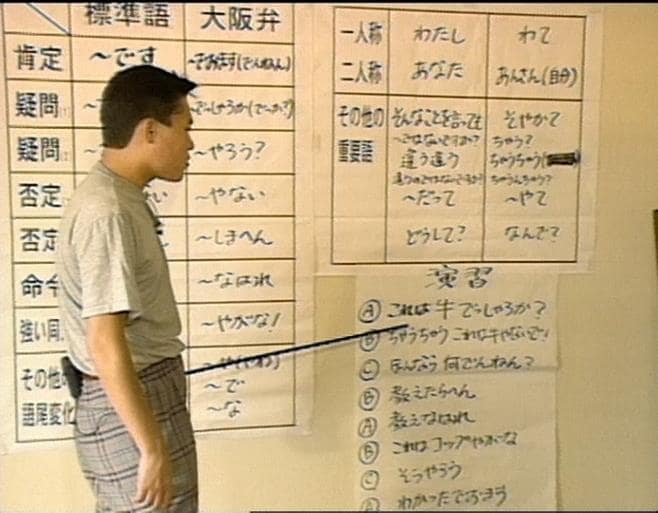 標準語 大阪弁
肯定 〜です
疑問
疑問 〜やろう?
否定 〜やない
否定 〜しまへん
命令 〜なはれ
強い同 〜やがな!
その他の 〜や(やわ)
〜で
語尾変化 〜な
一人称 わたし わて
二人称 あなた あんさん(自分)
その他の そんなことを言っても そやかて
〜ではないですか? ちゃう?
重要語 違う違う ちゃうちゃう
ちゃうんちゃう?
〜だって 〜やて
どうして? なんで?
演習
Ⓐ これは牛でっしゃろか?
Ⓑ ちゃうちゃう これは牛やないで!
Ⓒ ほんなら 何でんねん?
Ⓑ 教えたらへん
Ⓐ 教えなはれ
Ⓑ これはコップやがな
Ⓒ そうやろう